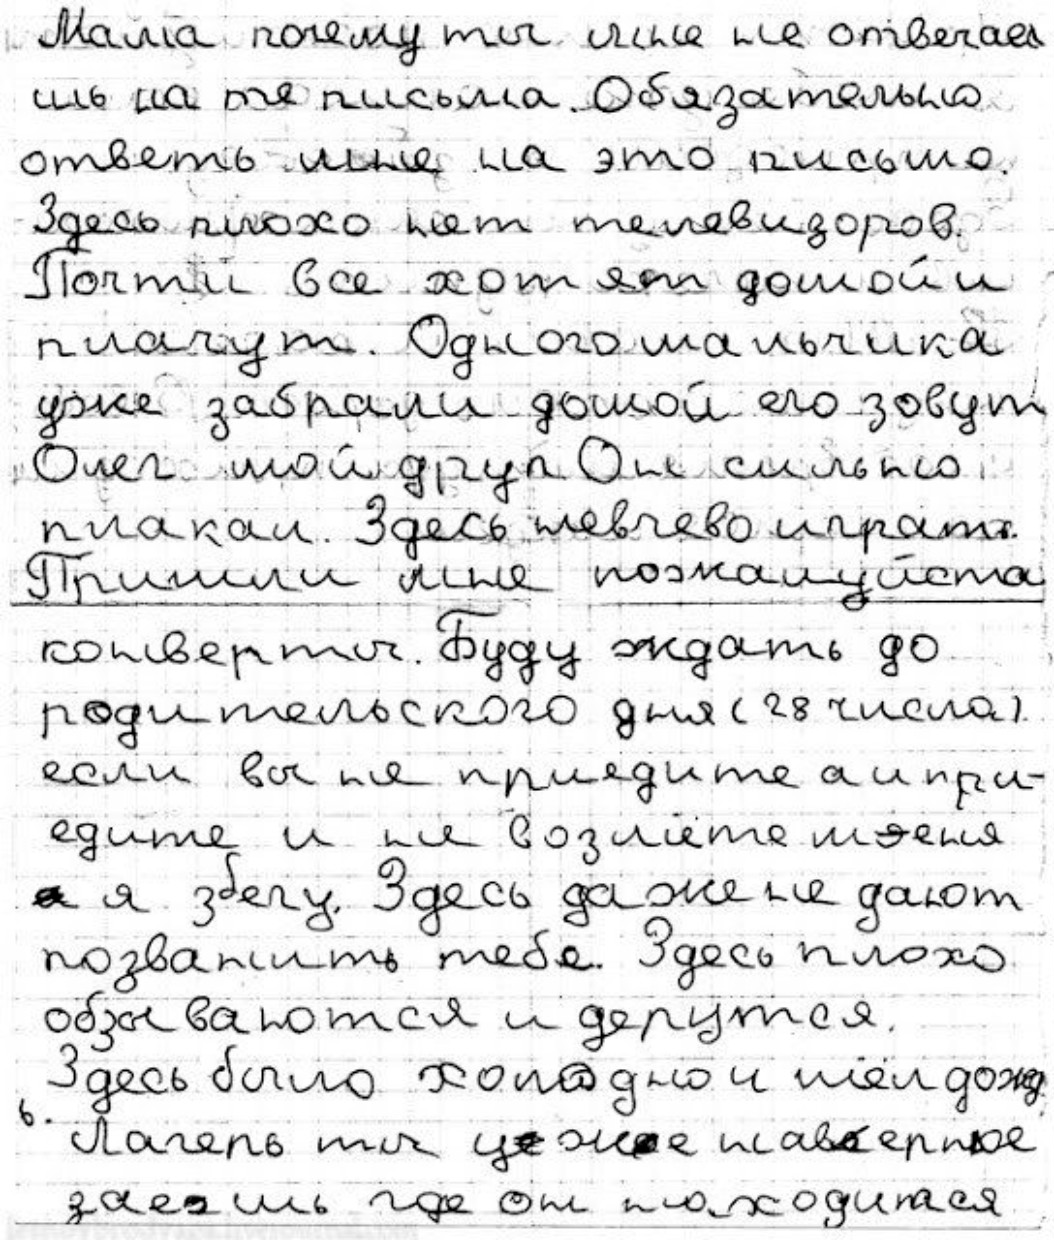 Мама почему ты мне не отвечае
шь на те письма. Обязательно
ответь мне на это письмо.
Здесь плохо нет телевизоров.
Почти все хотят домой и
плачут. Одного мальчика
уже забрали домой его зовут
Олег мой друг Он сильно
плакал. Здесь невчево играть.
Пришли мне пожалуйста
конверты. Буду ждать до
родительского дня (28 числа)
если вы не приедите али при-
едите и не возмёте меня
я збегу. Здесь даже не дают
позванить тебе. Здесь плохо
обзываются и дерутся.
Здесь было холодно и шёл дожд
ь.
Лагерь ты уже наверное
зна
ешь где он находится